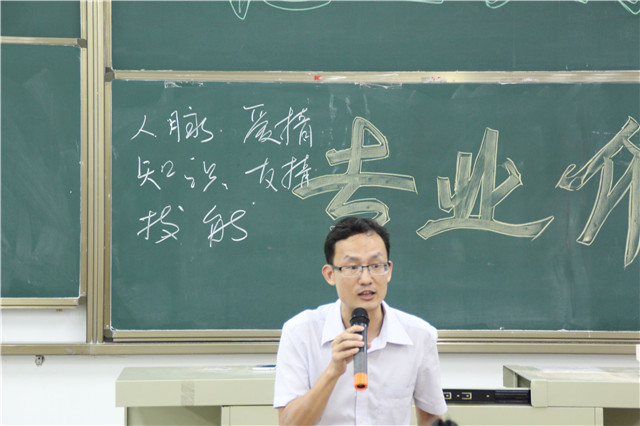 人脉 爱情
知识、友情
技能
专业